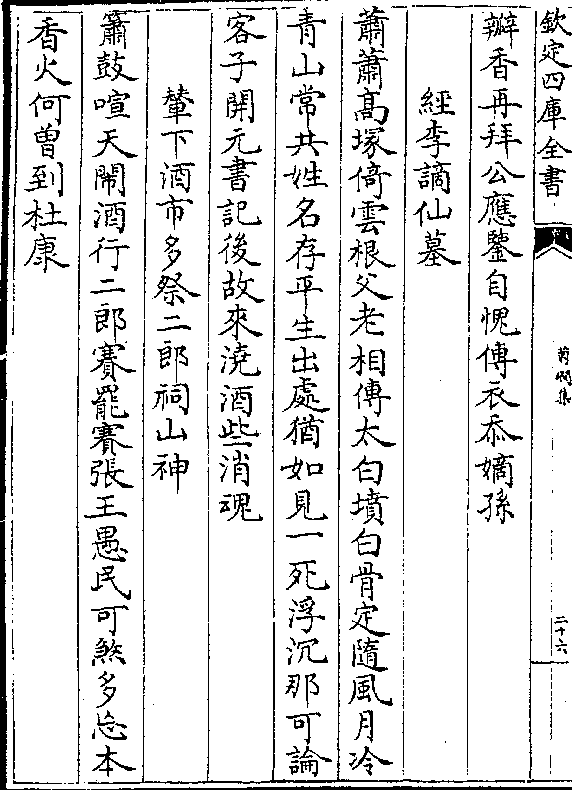 欽定四庫全書
澗集
二十六
瓣香再拜公應鑒自愧傳衣忝嫡孫
經李謫仙墓
蕭蕭髙塚倚雲根父老相傳太白墳白骨定隨風月冷
青山常共姓名存平生出處猶如見一死浮沉那可論
客子開元書記後故來澆酒些消魂
輦下酒市多祭二郎祠山神
簫鼓喧天鬧酒行二郎賽罷賽張王愚民可煞多忘本
香火何曽到杜康